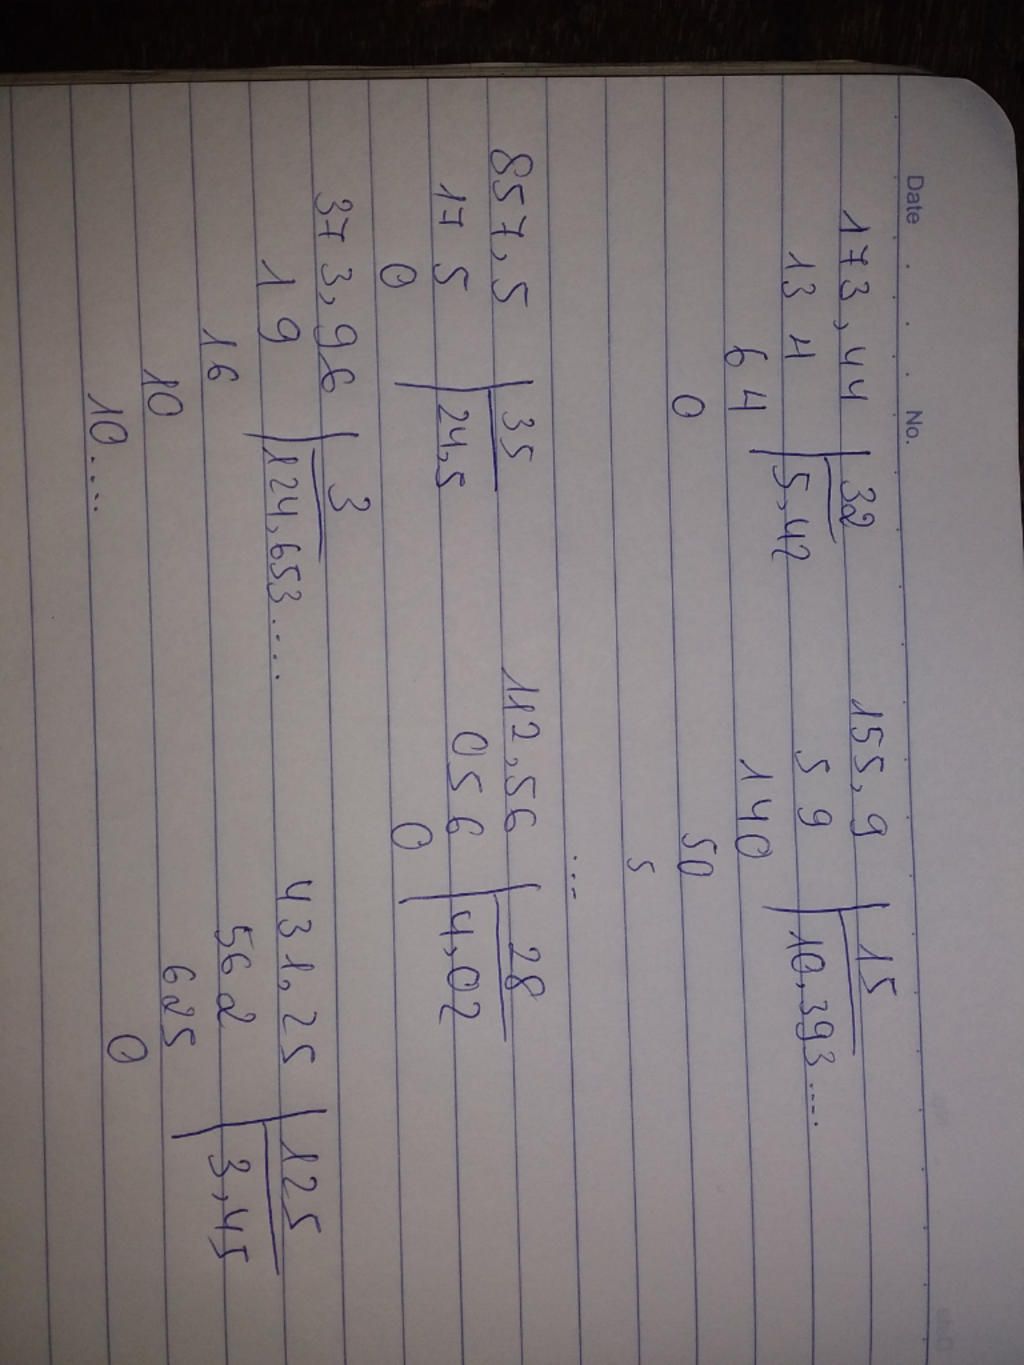 Date No.
173,44 32 155,9 15
13 4 5,42 5 9 10,393....
64 140
0 50
5
...
857,5 35 112,56 28
17 5 24,5 056 4,02
0 0
373,96 3 431,25 125
1 9 124,653.... 562 3,45
16 625
10 0
10....